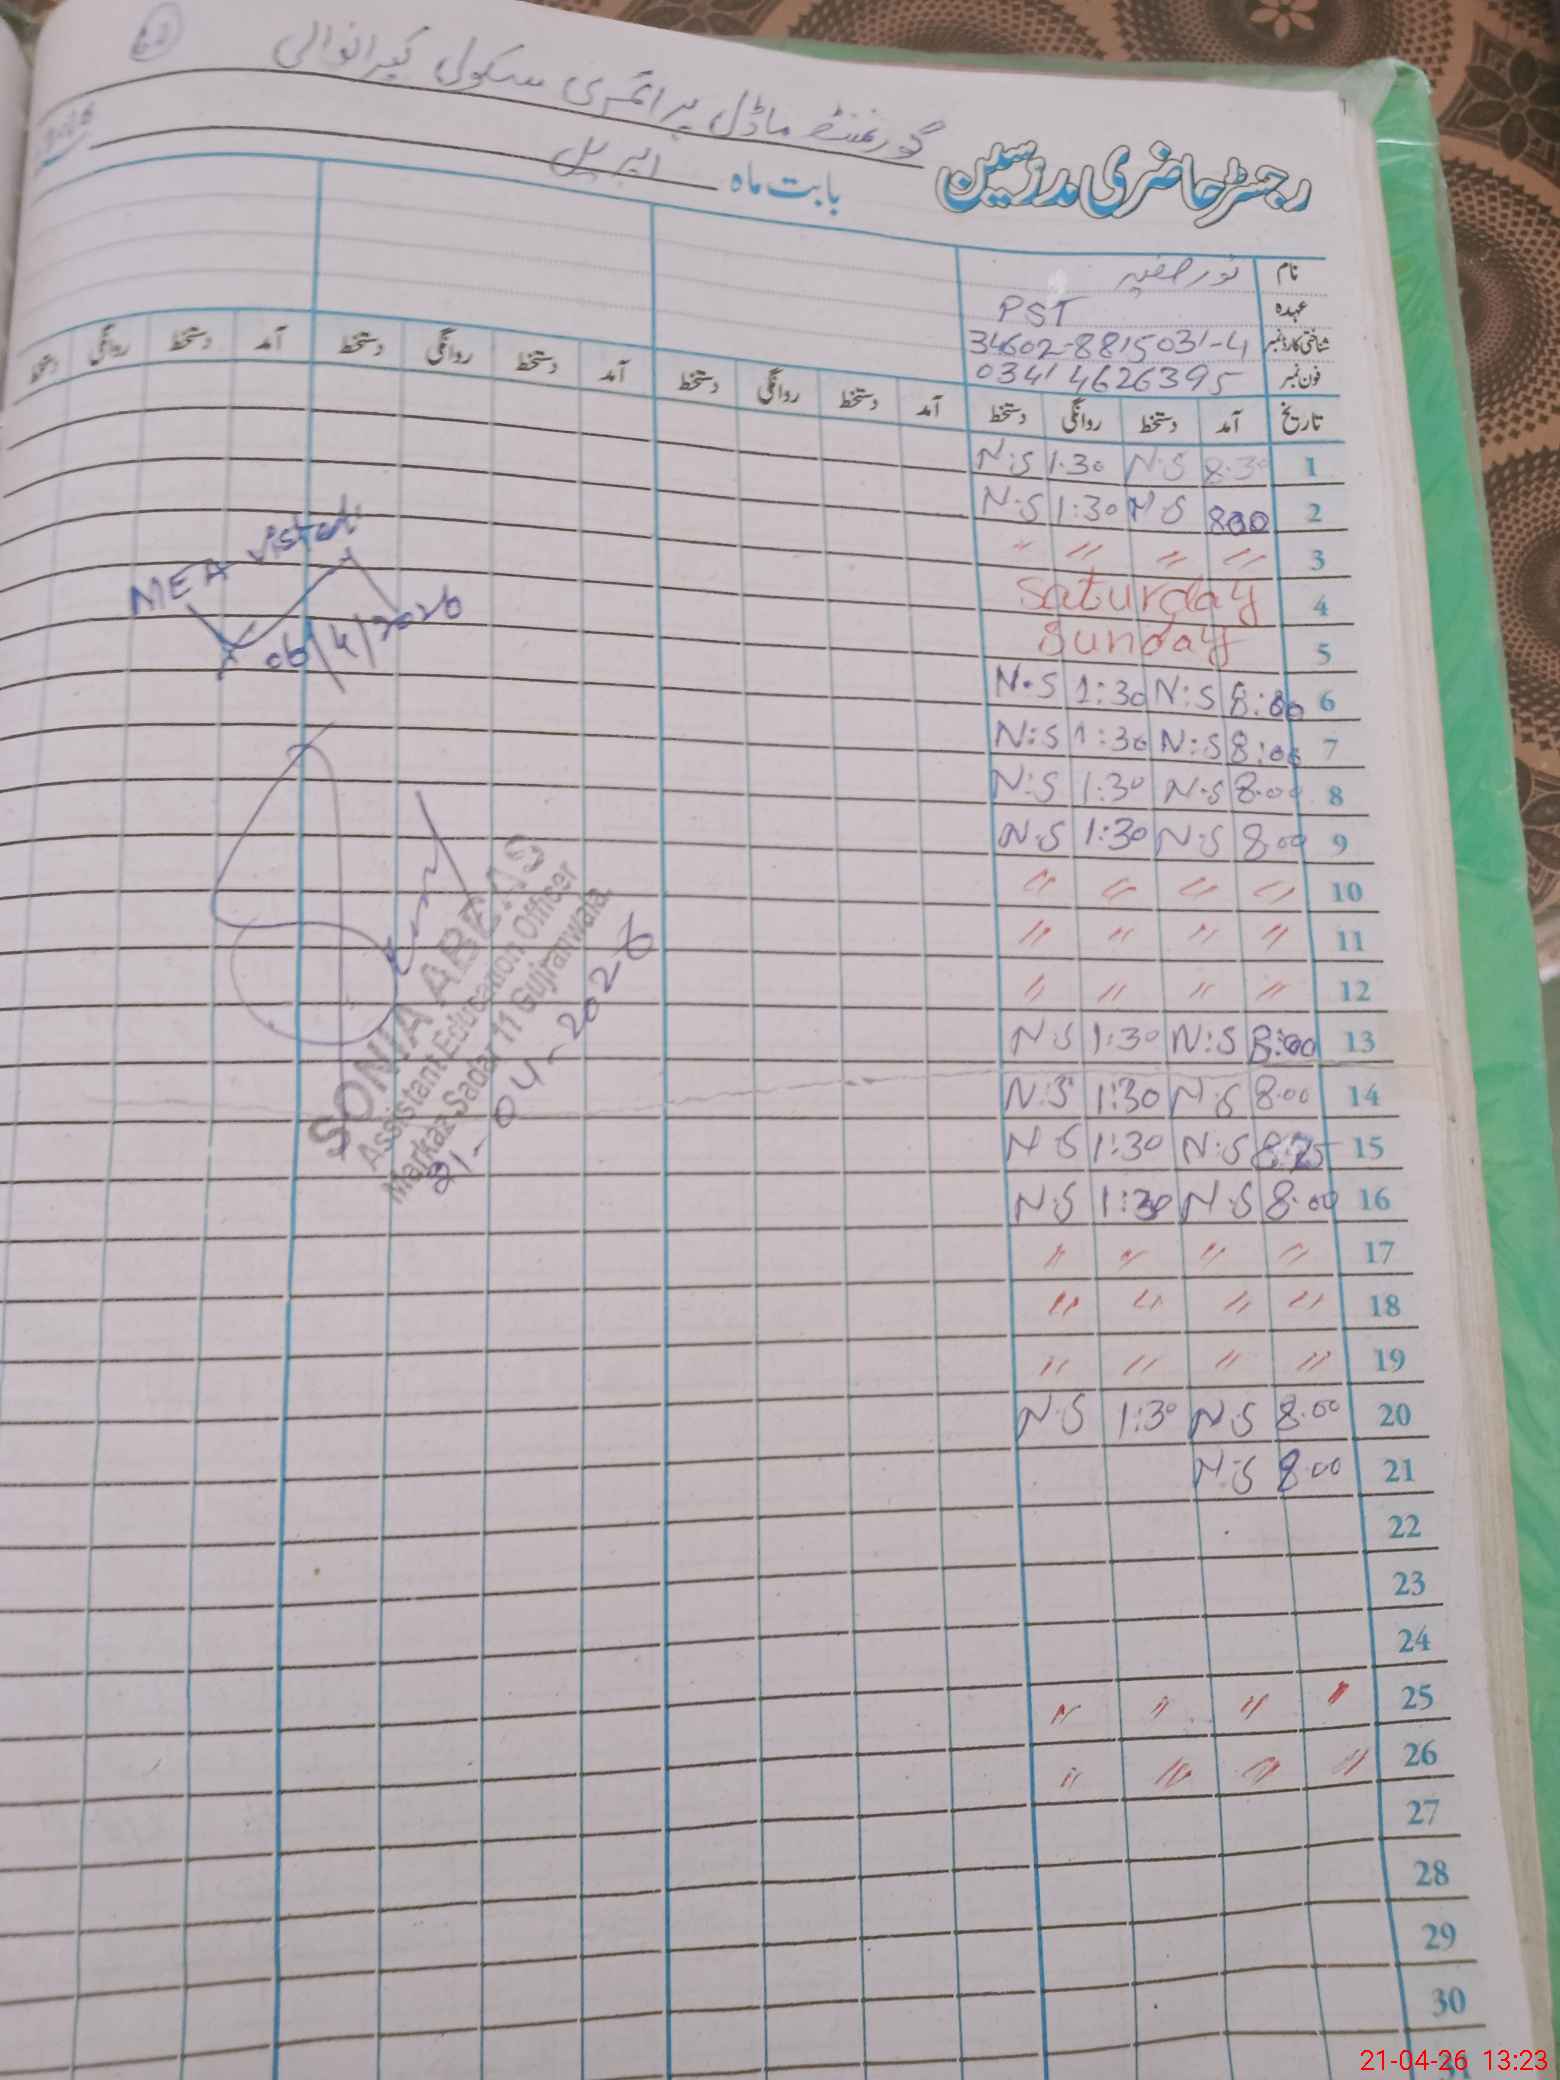 گورنمنٹ ماڈل پرائمری سکول کیرانوالی
رجسٹر حاضری مدرسین
بابت ماہ اپریل 2026
نام نور صفیہ
عہدہ PST
شناختی کارڈ نمبر 34602-8815031-4
فون نمبر 0341 4626395
تاریخ آمد دستخط روانگی دستخط آمد دستخط روانگی دستخط آمد دستخط روانگی دستخط آمد دستخط روانگی دستخط
1 8.30 N.S 1.30 N.S
2 800 N.S 1:30 N.S
3 〃 〃 〃 〃
4 Saturday
5 Sunday
6 8:00 N:S 1:30 N.S
7 8:00 N:S 1:30 N:S
8 8.00 N.S 1:30 N:S
9 8.00 N.S 1:30 N.S
10 〃 〃 〃 〃
11 〃 〃 〃 〃
12 〃 〃 〃 〃
13 8:00 N:S 1:30 N.S
14 8.00 N.S 1:30 N.S
15 8:25 N:S 1:30 N S
16 8.00 N.S 1:30 N.S
17 〃 〃 〃 〃
18 〃 〃 〃 〃
19 〃 〃 〃 〃
20 8.00 N.S 1:30 N.S
21 8.00 N:S
22
23
24
25 〃 〃 〃 〃
26 〃 〃 〃 〃
27
28
29
30
31
MEA Visted
06/4/2026
SONIA ABBAS
Assistant Education Officer
Markaz Sadar 11 Gujranwala
21-04-2026
21-04-26 13:23